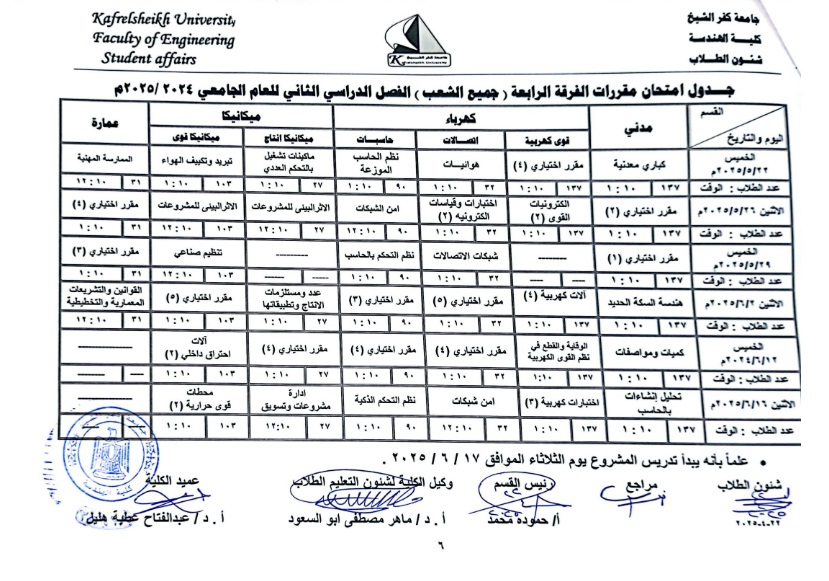 Kafrelsheikh University
Faculty of Engineering
Student affairs
جامعة كفر الشيخ
كلية الهندسة
شئون الطلاب
جـدول امتحان مقررات الفرقة الرابعة ( جميع الشعب ) الفصل الدراسي الثاني للعام الجامعي ٢٠٢٤ /٢٠٢٥م
القسم
اليوم والتاريخ
مدني
كهرباء
ميكانيكا
عمارة
قوى كهربية
اتصالات
حاسبات
ميكانيكا انتاج
ميكانيكا قوى
الخميس ٢٠٢٥/٥/٢٢م
كباري معدنية
مقرر اختياري (٤)
هوائيات
نظم الحاسب الموزعة
ماكينات تشغيل بالتحكم العددي
تبريد وتكييف الهواء
الممارسة المهنية
عدد الطلاب : الوقت ١٣٧ ١:١٠ ١٣٧ ١:١٠ ٣٢ ١:١٠ ٩٠ ١:١٠ ٢٧ ١:١٠ ١٠٣ ١:١٠ ٣١ ١٢:١٠
الاثنين ٢٠٢٥/٥/٢٦م
مقرر اختياري (٢)
الكترونيات القوى (٢)
اختبارات وقياسات الكترونيه (٢)
امن الشبكات
الاثرالبيئى للمشروعات
الاثرالبيئى للمشروعات
مقرر اختياري (٤)
عدد الطلاب : الوقت ١٣٧ ١:١٠ ١٣٧ ١:١٠ ٣٢ ١:١٠ ٩٠ ١٢:١٠ ٢٧ ١٢:١٠ ١٠٣ ١٢:١٠ ٣١ ١:١٠
الخميس ٢٠٢٥/٥/٢٩م
مقرر اختياري (١)
--------
شبكات الاتصالات
نظم التحكم بالحاسب
----------
تنظيم صناعي
مقرر اختياري (٣)
عدد الطلاب : الوقت ١٣٧ ١:١٠ ---- ---- ٣٢ ١:١٠ ٩٠ ١:١٠ ----- ----- ١٠٣ ١٢:١٠ ٣١ ١:١٠
الاثنين ٢٠٢٥/٦/٢م
هندسة السكة الحديد
آلات كهربية (٤)
مقرر اختياري (٥)
مقرر اختياري (٣)
عدد ومستلزمات الانتاج وتطبيقاتها
مقرر اختياري (٥)
القوانين والتشريعات المعمارية والتخطيطية
عدد الطلاب : الوقت ١٣٧ ١:١٠ ١٣٧ ١:١٠ ٣٢ ١:١٠ ٩٠ ١:١٠ ٢٧ ١:١٠ ١٠٣ ١:١٠ ٣١ ١٢:١٠
الخميس ٢٠٢٤/٦/١٢م
كميات ومواصفات
الوقاية والقطع في نظم القوى الكهربية
مقرر اختياري (٤)
مقرر اختياري (٤)
مقرر اختياري (٤)
آلات احتراق داخلي (٢)
------------
عدد الطلاب : الوقت ١٣٧ ١:١٠ ١٣٧ ١:١٠ ٣٢ ١:١٠ ٩٠ ١:١٠ ٢٧ ١:١٠ ١٠٣ ١:١٠ ---- ------
الاثنين ٢٠٢٥/٦/١٦م
تحليل إنشاءات بالحاسب
اختبارات كهربية (٣)
امن شبكات
نظم التحكم الذكية
ادارة مشروعات وتسويق
محطات قوى حرارية (٢)
------------
عدد الطلاب : الوقت ١٣٧ ١:١٠ ١٣٧ ١:١٠ ٣٢ ١٢:١٠ ٩٠ ١:١٠ ٢٧ ١٢:١٠ ١٠٣ ١:١٠
• علماً بأنه يبدأ تدريس المشروع يوم الثلاثاء الموافق ١٧ / ٦ / ٢٠٢٥ .
شئون الطلاب
مراجع
رئيس القسم
وكيل الكلية لشئون التعليم الطلاب
عميد الكلية
أ/ حمودة محمد
أ . د / ماهر مصطفى ابو السعود
أ . د / عبدالفتاح عطية هليل
٢٠٢٥-٤-٢٢
٦